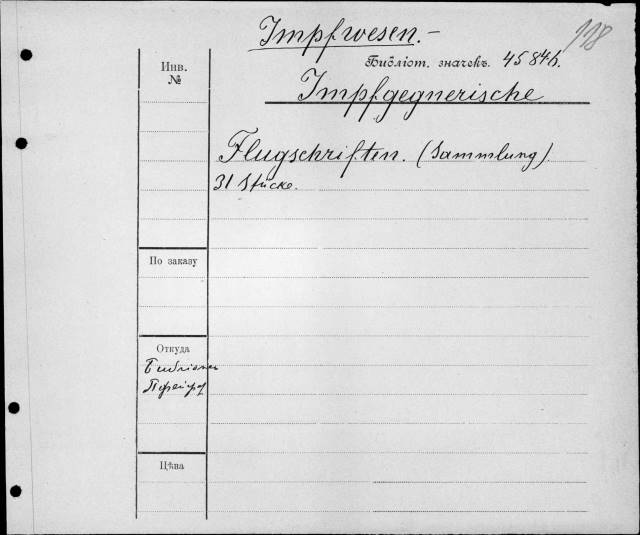 Impfwesen.-
118
Инв.
№
Библіот. значекъ. 45846.
Impfgegnerische
Flugschriften. (Sammlung)
31 Stücke.
По заказу
Откуда
Цѣна